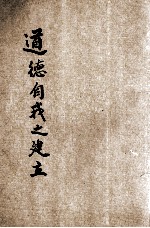 道德自我之建立